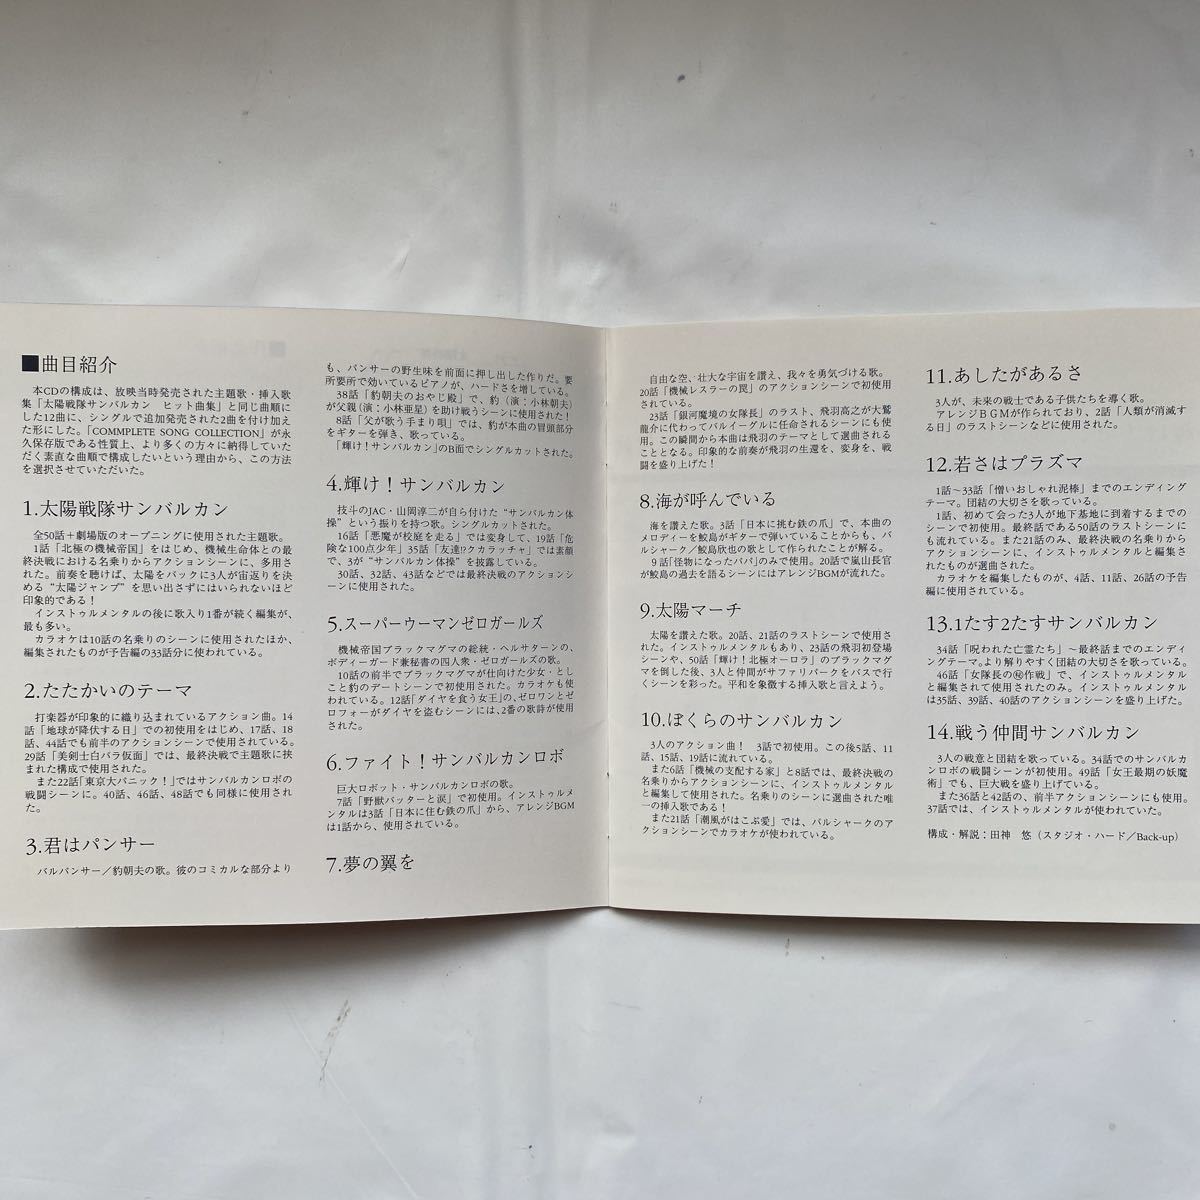 ■曲目紹介
本CDの構成は、放映当時発売された主題歌・挿入歌
集「太陽戦隊サンバルカン ヒット曲集」と同じ曲順に
した12曲に、シングルで追加発売された2曲を付け加え
た形にした。「COMMPLETE SONG COLLECTION」が永
久保存版である性質上、より多くの方々に納得していた
だく素直な曲順で構成したいという理由から、この方法
を選択させていただいた。
1.太陽戦隊サンバルカン
全50話＋劇場版のオープニングに使用された主題歌。
1話「北極の機械帝国」をはじめ、機械生命体との最
終決戦における名乗りからアクションシーンに、多用さ
れた。前奏を聴けば、太陽をバックに3人が宙返りを決
める“太陽ジャンプ”を思い出さずにはいられないほど
印象的である！
インストゥルメンタルの後に歌入り1番が続く編集が、
最も多い。
カラオケは10話の名乗りのシーンに使用されたほか、
編集されたものが予告編の33話分に使われている。
2.たたかいのテーマ
打楽器が印象的に織り込まれているアクション曲。14
話「地球が降伏する日」での初使用をはじめ、17話、18
話、44話でも前半のアクションシーンで使用されている。
29話「美剣士白バラ仮面」では、最終決戦で主題歌に挟
まれた構成で使用された。
また22話「東京大パニック！」ではサンバルカンロボの
戦闘シーンに。40話、46話、48話でも同様に使用され
た。
3.君はパンサー
バルパンサー／豹朝夫の歌。彼のコミカルな部分より
も、パンサーの野生味を前面に押し出した作りだ。要
所要所で効いているピアノが、ハードさを増している。
38話「豹朝夫のおやじ殿」で、豹（演：小林朝夫）
が父親（演：小林亜星）を助け戦うシーンに使用された！
8話「父が歌う手まり唄」では、豹が本曲の冒頭部分
をギターを弾き、歌っている。
「輝け！サンバルカン」のB面でシングルカットされた。
4.輝け！サンバルカン
技斗のJAC・山岡淳二が自ら付けた“サンバルカン体
操”という振りを持つ歌。シングルカットされた。
16話「悪魔が校庭を走る」では変身して、19話「危
険な100点少年」35話「友達!?クカラッチャ」では素顔
で、3が“サンバルカン体操”を披露している。
30話、32話、43話などでは最終決戦のアクションシー
ンに使用された。
5.スーパーウーマンゼロガールズ
機械帝国ブラックマグマの総統・ヘルサターンの、
ボディーガード兼秘書の四人衆・ゼロガールズの歌。
10話の前半でブラックマグマが仕向けた少女・とし
こと豹のデートシーンで使用された。カラオケも使
われている。12話「ダイヤを食う女王」の、ゼロワンとゼ
ロフォーがダイヤを盗むシーンには、2番の歌詩が使用
された。
6.ファイト！サンバルカンロボ
巨大ロボット・サンバルカンロボの歌。
7話「野獣バッターと涙」で初使用。インストゥルメ
ンタルは3話「日本に住む鉄の爪」から、アレンジBGM
は1話から、使用されている。
7.夢の翼を
自由な空、壮大な宇宙を讃え、我々を勇気づける歌。
20話「機械レスラーの罠」のアクションシーンで初使用
されている。
23話「銀河魔境の女隊長」のラスト、飛羽高之が大鷲
龍介に代わってバルイーグルに任命されるシーンにも使
用。この瞬間から本曲は飛羽のテーマとして選曲される
こととなる。印象的な前奏が飛羽の生還を、変身を、戦
闘を盛り上げた！
8.海が呼んでいる
海を讃えた歌。3話「日本に挑む鉄の爪」で、本曲の
メロディーを鮫島がギターで弾いていることからも、バ
ルシャーク／鮫島欣也の歌として作られたことが解る。
9話「怪物になったパパ」のみで使用。20話で嵐山長官
が鮫島の過去を語るシーンにはアレンジBGMが流れた。
9.太陽マーチ
太陽を讃えた歌。20話、21話のラストシーンで使用さ
れた。インストゥルメンタルもあり、23話の飛羽初登場
シーンや、50話「輝け！北極オーロラ」のブラックマグ
マを倒した後、3人と仲間がサファリパークをバスで行
くシーンを彩った。平和を象徴する挿入歌と言えよう。
10.ぼくらのサンバルカン
3人のアクション曲！ 3話で初使用。この後5話、11
話、15話、19話に流れている。
また6話「機械の支配する家」と8話では、最終決戦の
名乗りからアクションシーンに、インストゥルメンタル
と編集して使用された。名乗りのシーンに選曲された唯
一の挿入歌である！
また21話「潮風がはこぶ愛」では、バルシャークのア
クションシーンでカラオケが使われている。
11.あしたがあるさ
3人が、未来の戦士である子供たちを導く歌。
アレンジBGMが作られており、2話「人類が消滅す
る日」のラストシーンなどに使用された。
12.若さはプラズマ
1話〜33話「憎いおしゃれ泥棒」までのエンディング
テーマ。団結の大切さを歌っている。
1話、初めて会った3人が地下基地に到着するまでの
シーンで初使用。最終話である50話のラストシーンに
も流れている。また21話のみ、最終決戦の名乗りから
アクションシーンに、インストゥルメンタルと編集さ
れたものが選曲された。
カラオケを編集したものが、4話、11話、26話の予告
編に使用されている。
13.1たす2たすサンバルカン
34話「呪われた亡霊たち」〜最終話までのエンディン
グテーマ。より解りやすく団結の大切さを歌っている。
46話「女隊長の㊙作戦」で、インストゥルメンタル
と編集されて使用されたのみ。インストゥルメンタル
は35話、39話、40話のアクションシーンを盛り上げた。
14.戦う仲間サンバルカン
3人の戦意と団結を歌っている。34話でのサンバル
カンロボの戦闘シーンが初使用。49話「女王最期の妖魔
術」でも、巨大戦を盛り上げている。
また36話と42話の、前半アクションシーンにも使用。
37話では、インストゥルメンタルが使われていた。
構成・解説：田神 悠（スタジオ・ハード／Back-up）